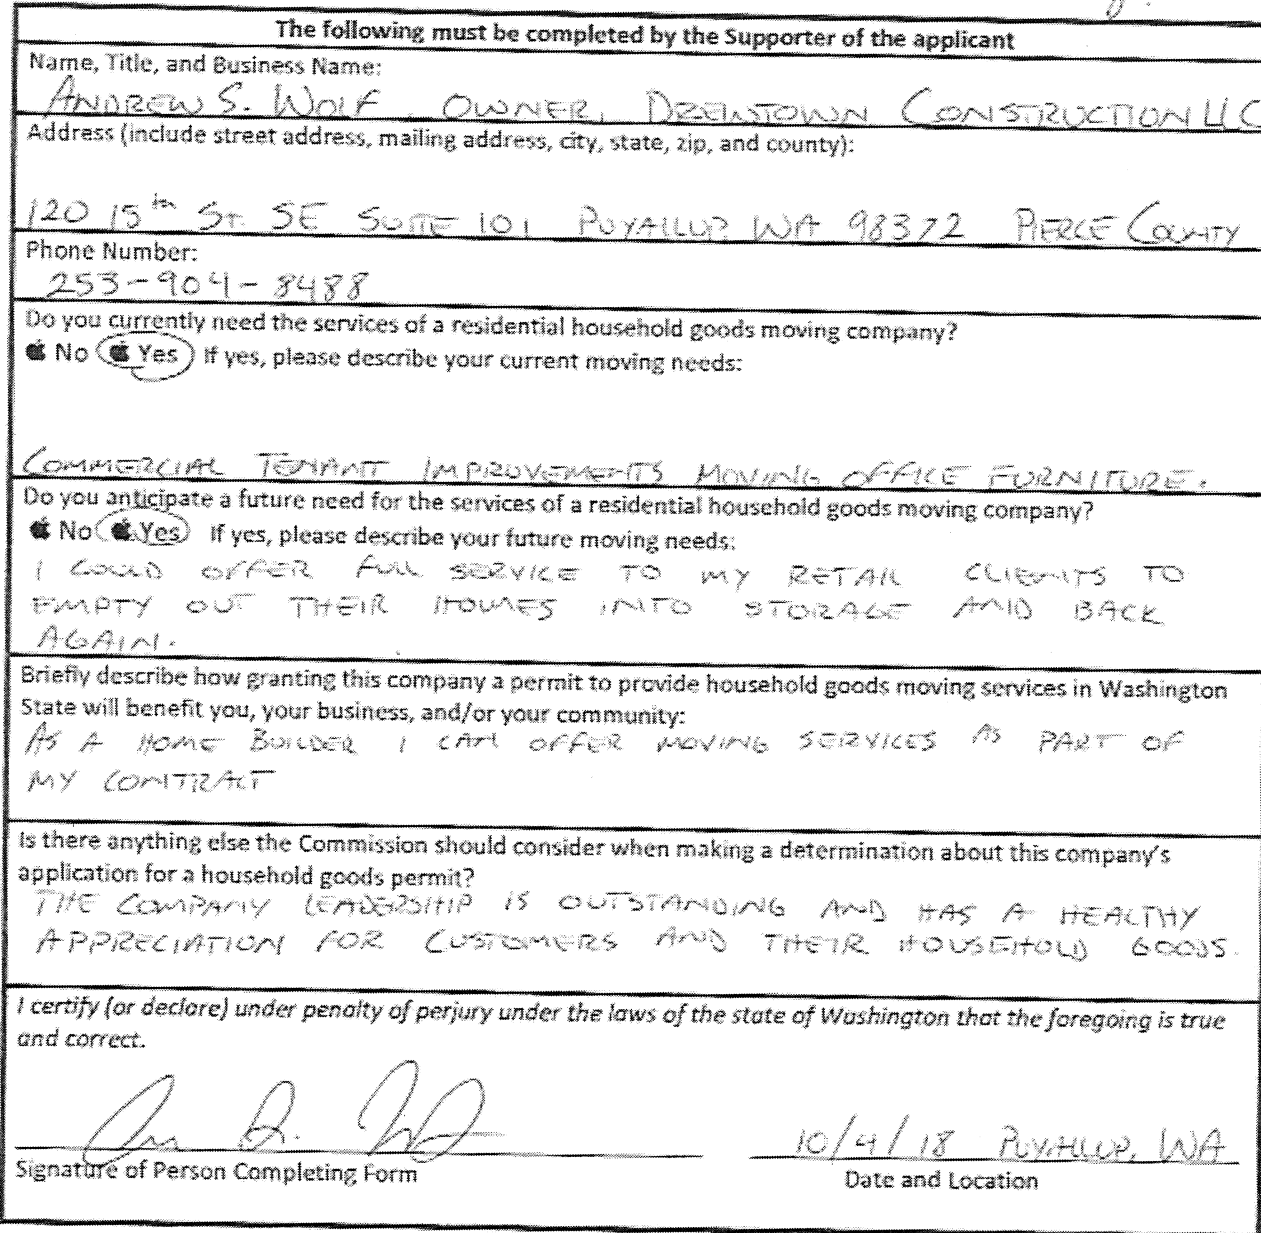 The following must be completed by the Supporter of the applicant
Name, Title, and Business Name:
ANDREW S. WOLF, OWNER, CONSTRUCTION LLC
Address (include street address, mailing address, city, state, zip, and county):
120 15th ST. SE SUITE 101 PUYALLUP, WA 98372 PIERCE COUNTY
Phone Number:
253-904-8488
Do you currently need the services of a residential household goods moving company?
No Yes If yes, please describe your current moving needs:
COMMERCIAL TENANT IMPROVEMENTS MOVING OFFICE FURNITURE.
Do you anticipate a future need for the services of a residential household goods moving company?
No Yes If yes, please describe your future moving needs:
I COULD OFFER FULL SERVICE TO MY RETAIL CLIENTS TO
EMPTY OUT THEIR HOMES INTO STORAGE AND BACK
AGAIN.
Briefly describe how granting this company a permit to provide household goods moving services in Washington
State will benefit you, your business, and/or your community:
AS A HOME BUILDER I CAN OFFER MOVING SERVICES AS PART OF
MY CONTRACT
Is there anything else the Commission should consider when making a determination about this company's
application for a household goods permit?
THE COMPANY LEADERSHIP IS OUTSTANDING AND HAS A HEALTHY
APPRECIATION FOR CUSTOMERS AND THEIR HOUSEHOLD GOODS.
I certify (or declare) under penalty of perjury under the laws of the state of Washington that the foregoing is true
and correct.
10/4/18 PUYALLUP, WA
Signature of Person Completing Form
Date and Location